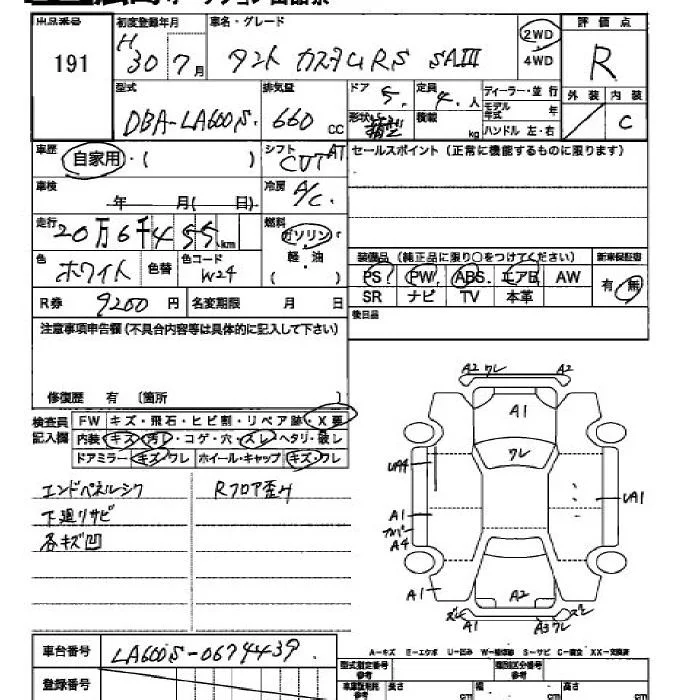 出品番号 191
初度登録年月 H 30 7月
車名・グレード タント カスタムRS SAIII
2WD
4WD
評価点 R
型式 DBA-LA600S
排気量 660 cc
ドア 5
定員 4人
ディーラー・並行
モデル年式 年
ハンドル 左・右
形状
積載 kg
外装 内装
C
車歴 自家用・( )
シフト CVT AT
セールスポイント(正常に機能するものに限ります)
車検 年 月( 日)
冷房 A/C
走行 20万6千455km
燃料 ガソリン・軽・油 ( )
色 ホワイト 色替
色コード W24
装備品(純正品に限り○をつけてください) 新車保証書
PS PW ABS エアB AW 有・無
SR ナビ TV 本革
R券 9200円 名変期限 月 日
後日品
注意事項申告欄(不具合内容等は具体的に記入して下さい)
修復歴 有 〔箇所 〕
検査員記入欄
FW キズ・飛石・ヒビ割・リペア跡・X要
内装 キズ・汚レ・コゲ・穴・スレ・ヘタリ・破レ
ドアミラー キズ・ワレ ホイール・キャップ キズ・ワレ
エンドパネルシワ Rフロア歪ミ
下廻リサビ
各キズ凹
A2 ワレ A2
A1
ワレ
UA4
UA1
A1
A4
A2
A1 ズレ A1 A3 ワレ ズレ
A-キズ E-エクボ U-凹み W-補修跡 S-サビ C-腐食 XX-交換済
車台番号 LA600S-0679439
登録番号
型式指定番号 参考
類別区分番号 参考
長さ cm 幅 cm 高さ cm